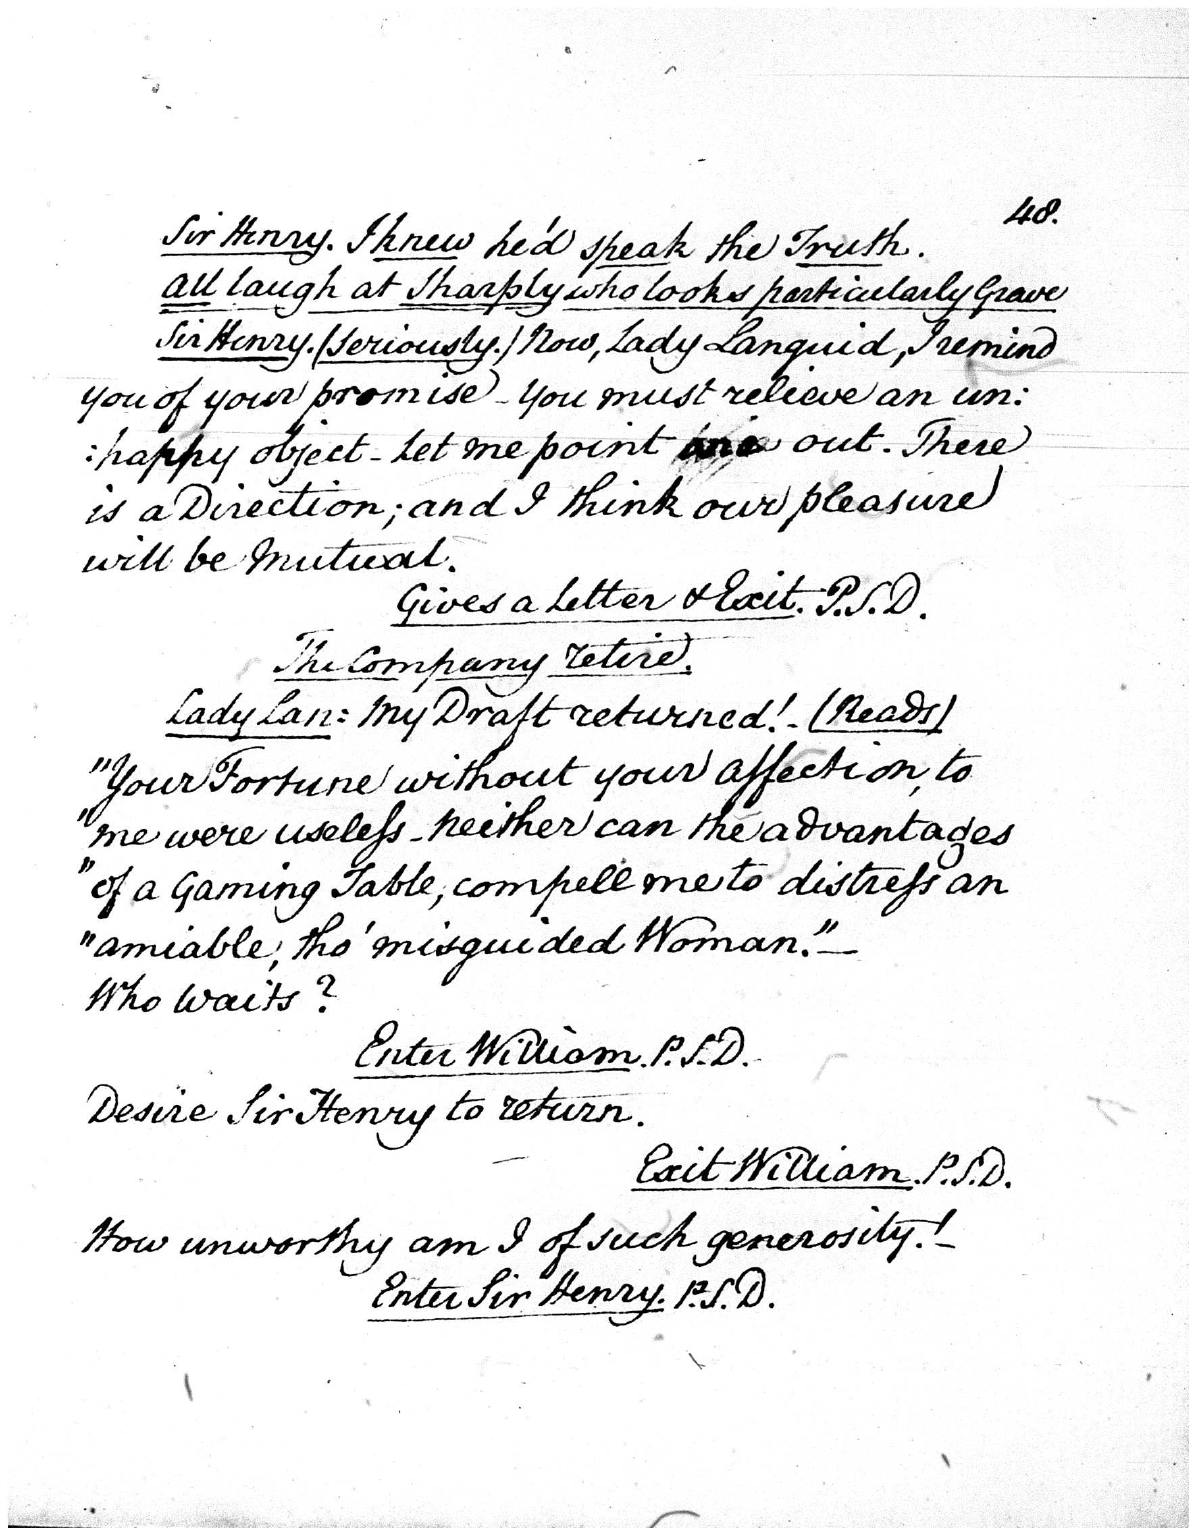 48.
Sir Henry. I knew he'd speak the Truth.
All laugh at Sharply who looks particularly Grave
Sir Henry. (Seriously.) Now, Lady Languid, I remind
you of your promise - You must relieve an un:
:happy object - Let me point one out. There
is a Direction; and I think our pleasure
will be Mutual.
Gives a Letter & Exit. P.S.D.
The Company retire.
Lady Lan: My Draft returned! - (Reads)
"Your Fortune without your affection, to
"me were useleſs - Neither can the advantages
"of a Gaming Table, compell me to distreſs an
"amiable, tho' misguided Woman." —
Who waits?
Enter William. P.S.D.
Desire Sir Henry to return.
Exit William. P.S.D.
How unworthy am I of such generosity! -
Enter Sir Henry. P.S.D.